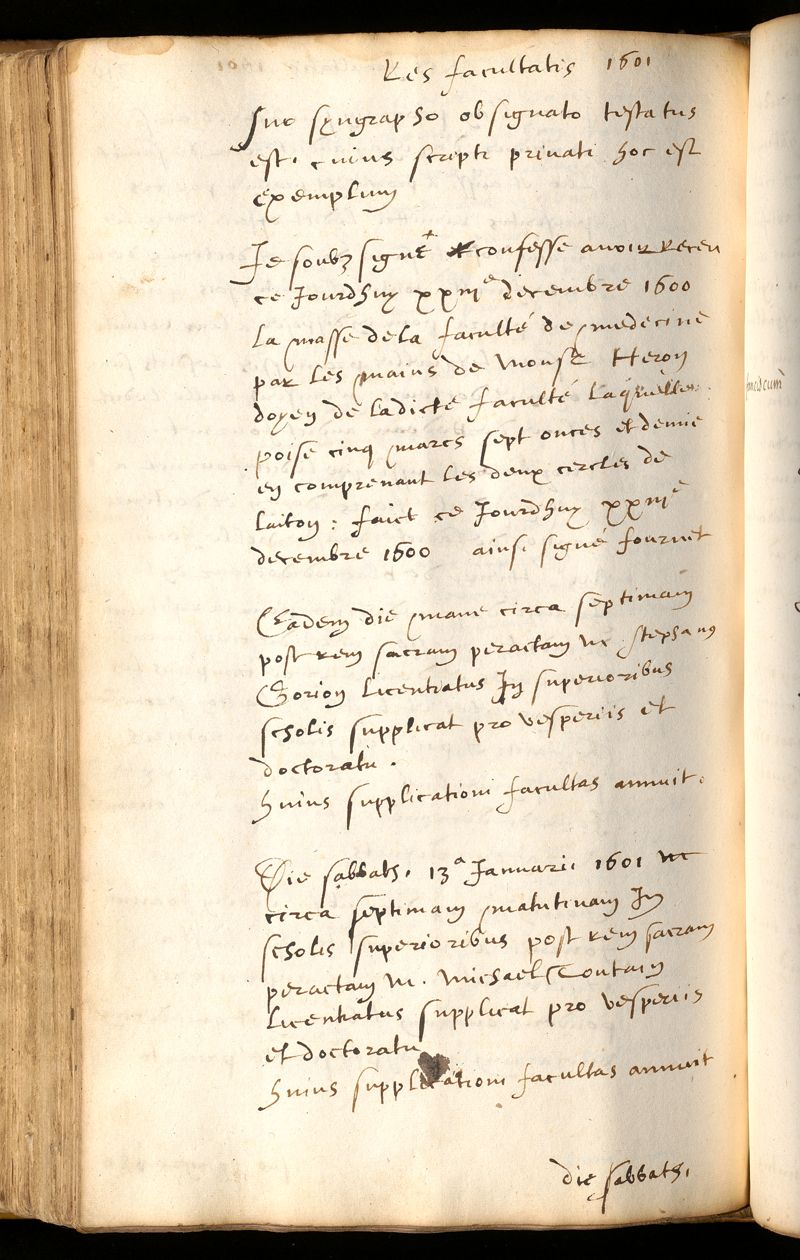 Res facultatis 1601
suo syngrapho obsignato testatus
est. cuius scripti privati hoc est
exemplum
Je soubzsigné confesse avoir Receu
ce Jourdhuy xxiiie decembre 1600
la masse dela faculté de medecine
par les mains de monsr Heron
doyen de ladicte faculté laquelle
poise cinq marcs sept onces et demie
en comprenant les deux cercles de
laiton : faict ce Jourdhuy xxiiie
decembre 1600 ainsi signé fournet
Eadem die mane circa septimam
post rem sacram peractam M. Stephanus
Gorion licentiatus In superioribus
scholis supplicat pro vesperiis et
doctoratu.
huius supplicationi facultas annuit.
Die sabbathi 13a Januarii 1601
circa septimam matutinam In
scholis superioribus post rem sacram
peractam M. Michael Toutain
licentiatus supplicat pro vesperiis
et doctoratu
huius supplicationi facultas annuit
die sabbathi